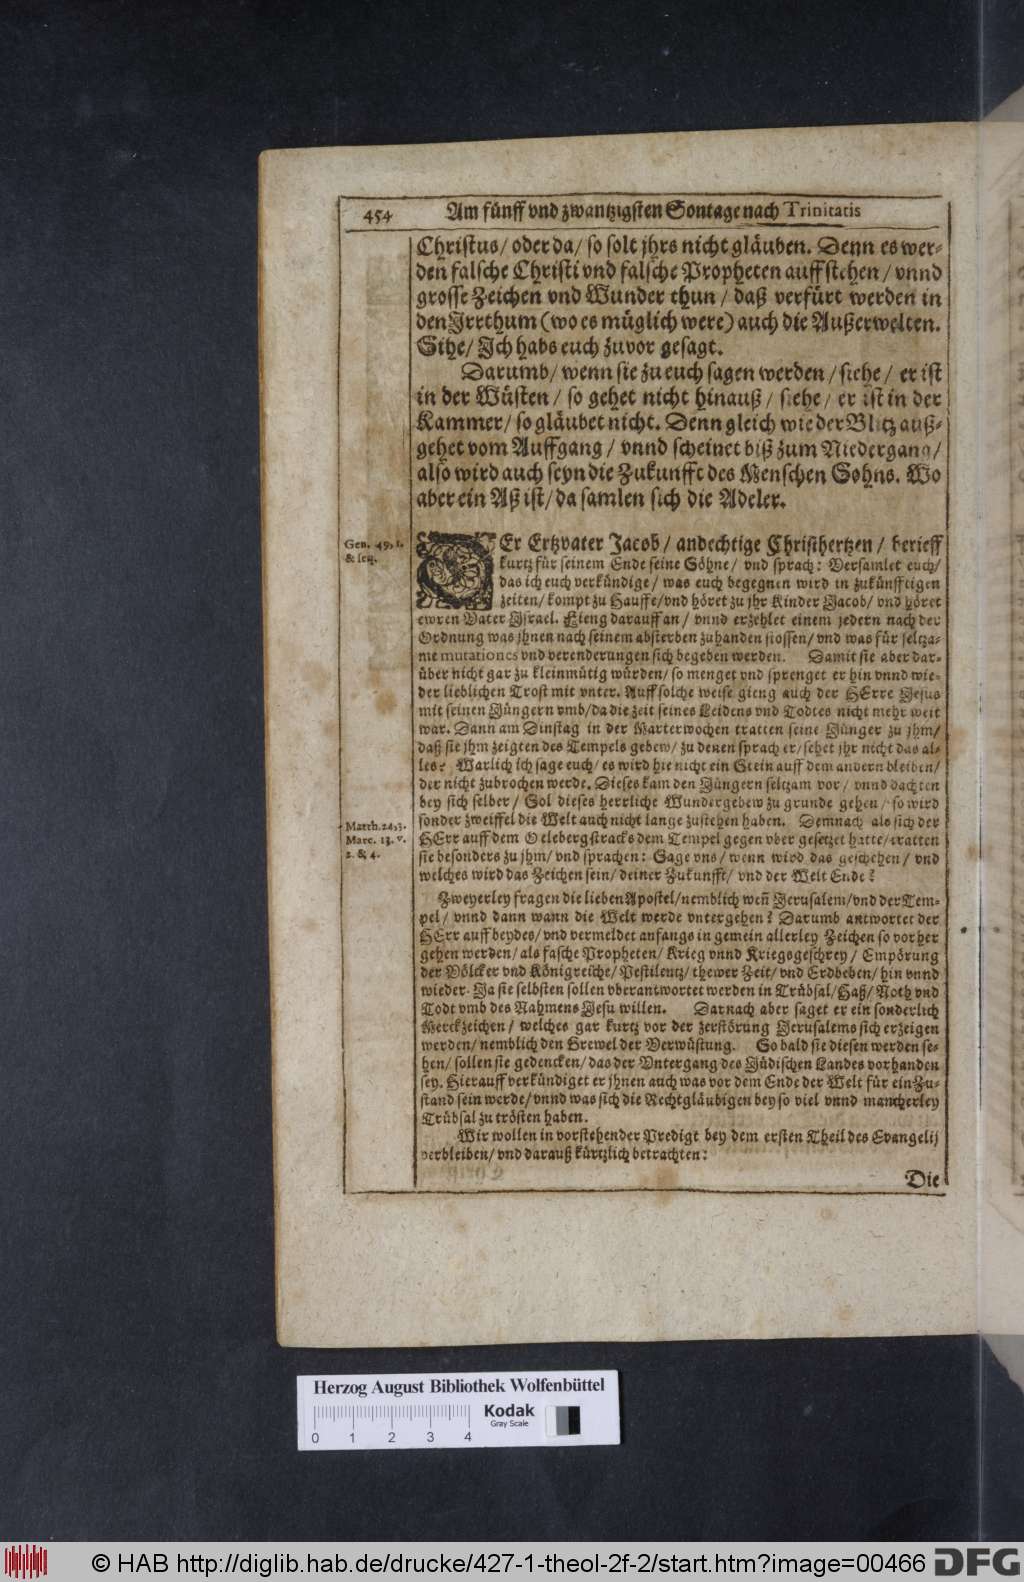 454 Am fünff vnd zwantzigsten Sontage nach Trinitatis
Christus/ oder da/ so solt jhrs nicht gläuben. Denn es wer-
den falsche Christi vnd falsche Propheten auffstehen/ vnnd
grosse Zeichen vnd Wunder thun/ daß verfürt werden in
den Irrthum (wo es müglich were) auch die Außerwelten.
Sihe/ Ich habs euch zuvor gesagt.
Darumb/ wenn sie zu euch sagen werden/ siehe/ er ist
in der Wüsten/ so gehet nicht hinauß/ siehe/ er ist in der
Kammer/ so gläubet nicht. Denn gleich wie der Blitz auß-
gehet vom Auffgang/ vnnd scheinet biß zum Niedergang/
also wird auch seyn die Zukunfft des Menschen Sohns. Wo
aber ein Aß ist/ da samlen sich die Adeler.
Gen. 49, 1.
& seq.
DEr Ertzvater Jacob/ andechtige Christhertzen/ berieff
kurtz für seinem Ende seine Söhne/ vnd sprach: Versamlet euch/
das ich euch verkündige/ was euch begegnen wird in zukünfftigen
zeiten/ kompt zu Hauffe/ vnd höret zu jhr Kinder Jacob/ vnd höret
ewren Vater Israel. Fieng darauff an/ vnnd erzehlet einem jedern nach der
Ordnung was jhnen nach seinem absterben zuhanden stossen/ vnd was für seltza-
me mutationes vnd verenderungen sich begeben werden. Damit sie aber dar-
über nicht gar zu kleinmütig würden/ so menget vnd sprenget er hin vnnd wie-
der lieblichen Trost mit vnter. Auff solche weise gieng auch der HErre Jesus
mit seinen Jüngern vmb/ da die zeit seines Leidens vnd Todtes nicht mehr weit
war. Dann am Dinstag in der Marterwochen tratten seine Jünger zu jhm/
daß sie jhm zeigten des Tempels gebew/ zu denen sprach er/ sehet jhr nicht das al-
les? Warlich ich sage euch/ es wird hie nicht ein Stein auff dem andern bleiben/
der nicht zubrochen werde. Dieses kam den Jüngern seltzam vor/ vnnd dachten
bey sich selber/ Sol dieses herrliche Wundergebew zu grunde gehen/ so wird
sonder zweiffel die Welt auch nicht lange zustehen haben. Demnach als sich der
Matth. 24. v. 3.
Marc. 13. v.
2. & 4.
HErr auff dem Oelebergstracks dem Tempel gegen vber gesetzet hatte/ tratten
sie besonders zu jhm/ vnd sprachen: Sage vns/ wenn wird das geschehen/ vnd
welches wird das Zeichen sein/ deiner Zukunfft/ vnd der Welt Ende?
Zweyerley fragen die lieben Apostel/ nemblich weñ Jerusalem/ vnd der Tem-
pel/ vnnd dann wann die Welt werde vntergehen? Darumb antwortet der
HErr auff beydes/ vnd vermeldet anfangs in gemein allerley Zeichen so vorher
gehen werden/ als fasche Propheten/ Krieg vnnd Kriegsgeschrey/ Empörung
der Völcker vnd Königreiche/ Pestilentz/ thewer Zeit/ vnd Erdbeben/ hin vnnd
wieder. Ja sie selbsten sollen vberantwortet werden in Trübsal/ Haß/ Noth vnd
Todt vmb des Nahmens Jesu willen. Darnach aber saget er ein sonderlich
Merckzeichen/ welches gar kurtz vor der zerstörung Jerusalems sich erzeigen
werden/ nemblich den Grewel der Verwüstung. So bald sie diesen werden se-
hen/ sollen sie gedencken/ das der Vntergang des Jüdischen Landes vorhanden
sey. Hierauff verkündiget er jhnen auch was vor dem Ende der Welt für ein Zu-
stand sein werde/ vnnd was sich die Rechtgläubigen bey so viel vnnd mancherley
Trübsal zu trösten haben.
Wir wollen in vorstehender Predigt bey dem ersten Theil des Evangelij
verbleiben/ vnd darauß kürtzlich betrachten:
Die
Herzog August Bibliothek Wolfenbüttel
Kodak
Gray Scale
0 1 2 3 4
© HAB http://diglib.hab.de/drucke/427-1-theol-2f-2/start.htm?image=00466 DFG